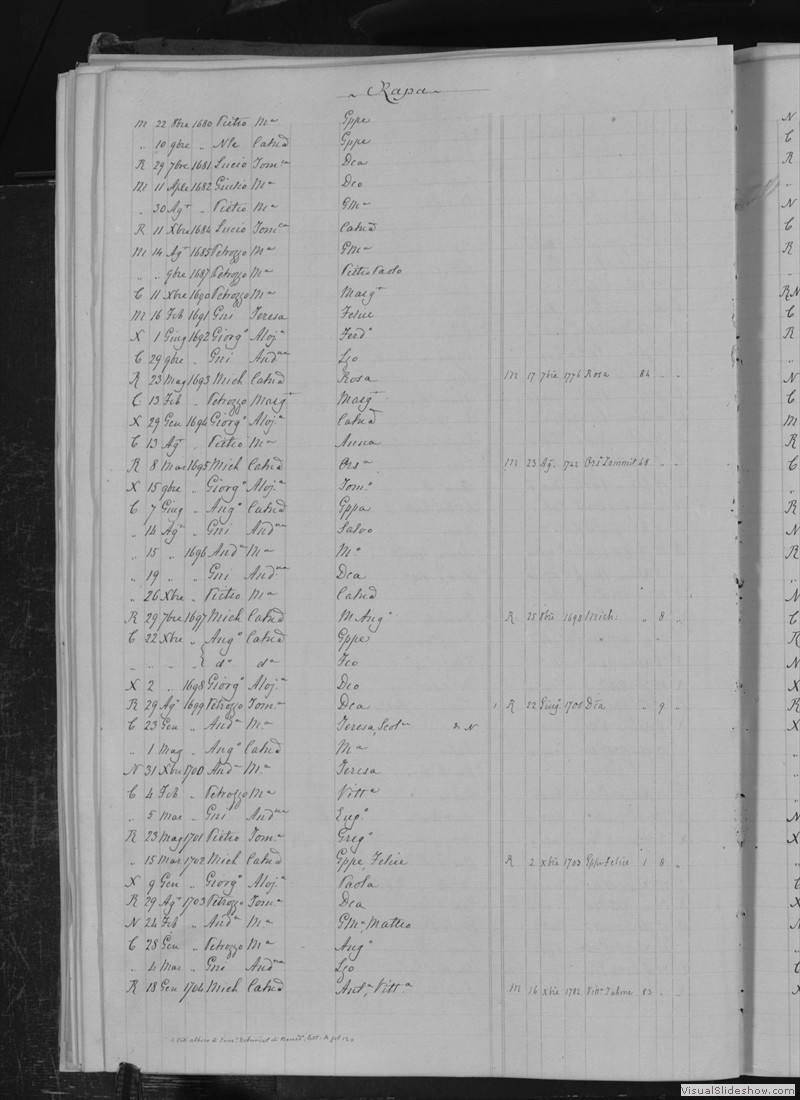 Rapa
M 22 8bre 1680 Pietro Ma Gppe
„ 10 9bre „ Nle Catnd Gppe
R 29 7bre 1681 Lucio Tomca Dca
M 11 Aple 1682 Giulio Ma Dco
„ 30 Agt „ Pietro Ma GMa
R 11 Xbre 1684 Lucio Tomca Catnd
M 14 Agt 1685 Petrozzo Ma GMa
„ „ 9bre 1687 Petrozzo Ma Pietro Paolo
C 11 Xbre 1690 Petrozzo Ma Margt
M 16 Feb 1691 Gni Teresa Felice
X 1 Giug 1692 Giorgo Aloja Ferdo
C 29 9bre „ Gni Andna Lzo
R 23 Mag 1693 Mich Catnd Rosa M 17 7bre 1776 Rosa 84 „ „
C 13 Feb „ Petrozzo Margt Margt
X 29 Gen 1694 Giorgo Aloja Catnd
C 13 Agt „ Pietro Ma Anna
R 8 Mar 1695 Mich Catnd Orsa M 23 Ag. 1722 Orsa Zammit 48 „ „
X 15 9bre „ Giorgo Aloja Tomo
C 7 Giug „ Ango Catnd Gppa
„ 14 Agt „ Gni Andna Salvo
„ 15 „ 1696 Anda Ma Ma
„ 19 „ „ Gni Andna Dca
„ 26 Xbre „ Pietro Ma Catnd
R 29 7bre 1697 Mich Catnd M Ango R 25 8bre 1698 Mich: „ 8 „
C 22 Xbre „ Ango Catnd Gppe
„ „ „ „ do da Fco
X 2 „ 1698 Giorgo Aloja Dco
R 29 Agt 1699 Petrozzo Toma Dca 1 R 22 Giugo 1700 Dca „ 9 „
C 23 Gen „ Anda Ma Teresa, Scota & N
„ 1 Mag „ Ango Catnd Ma
N 31 Xbre 1700 Anda Ma Teresa
C 4 Feb „ Petrozzo Ma Vitta
„ 5 Mar „ Gni Andna Eugo
R 23 Mag 1701 Pietro Toma Grego
„ 15 Mar 1702 Mich Catnd Gppe, Felice R 2 Xbre 1703 Gppe Felice 1 8 „
X 9 Gen „ Giorgo Aloja Paola
R 29 Agt 1703 Petrozzo Toma Dca
N 24 Feb „ Anda Ma GMa Matteo
C 28 Gen „ Petrozzo Ma Ango
„ 4 Mar „ Gni Andna Lzo
R 18 Gen 1704 Mich Catnd Anta, Vitta M 16 Xbre 1782 Vitta 83 „ „
N
C
R
„
N
C
R
„
R N
C
R
„
N
C
M
R
C
„
R
N
R
„
N
C
R
N
X
R
X
„
„
„
N
X
„
C
X
N
„
C
X
VisualSlideshow.com